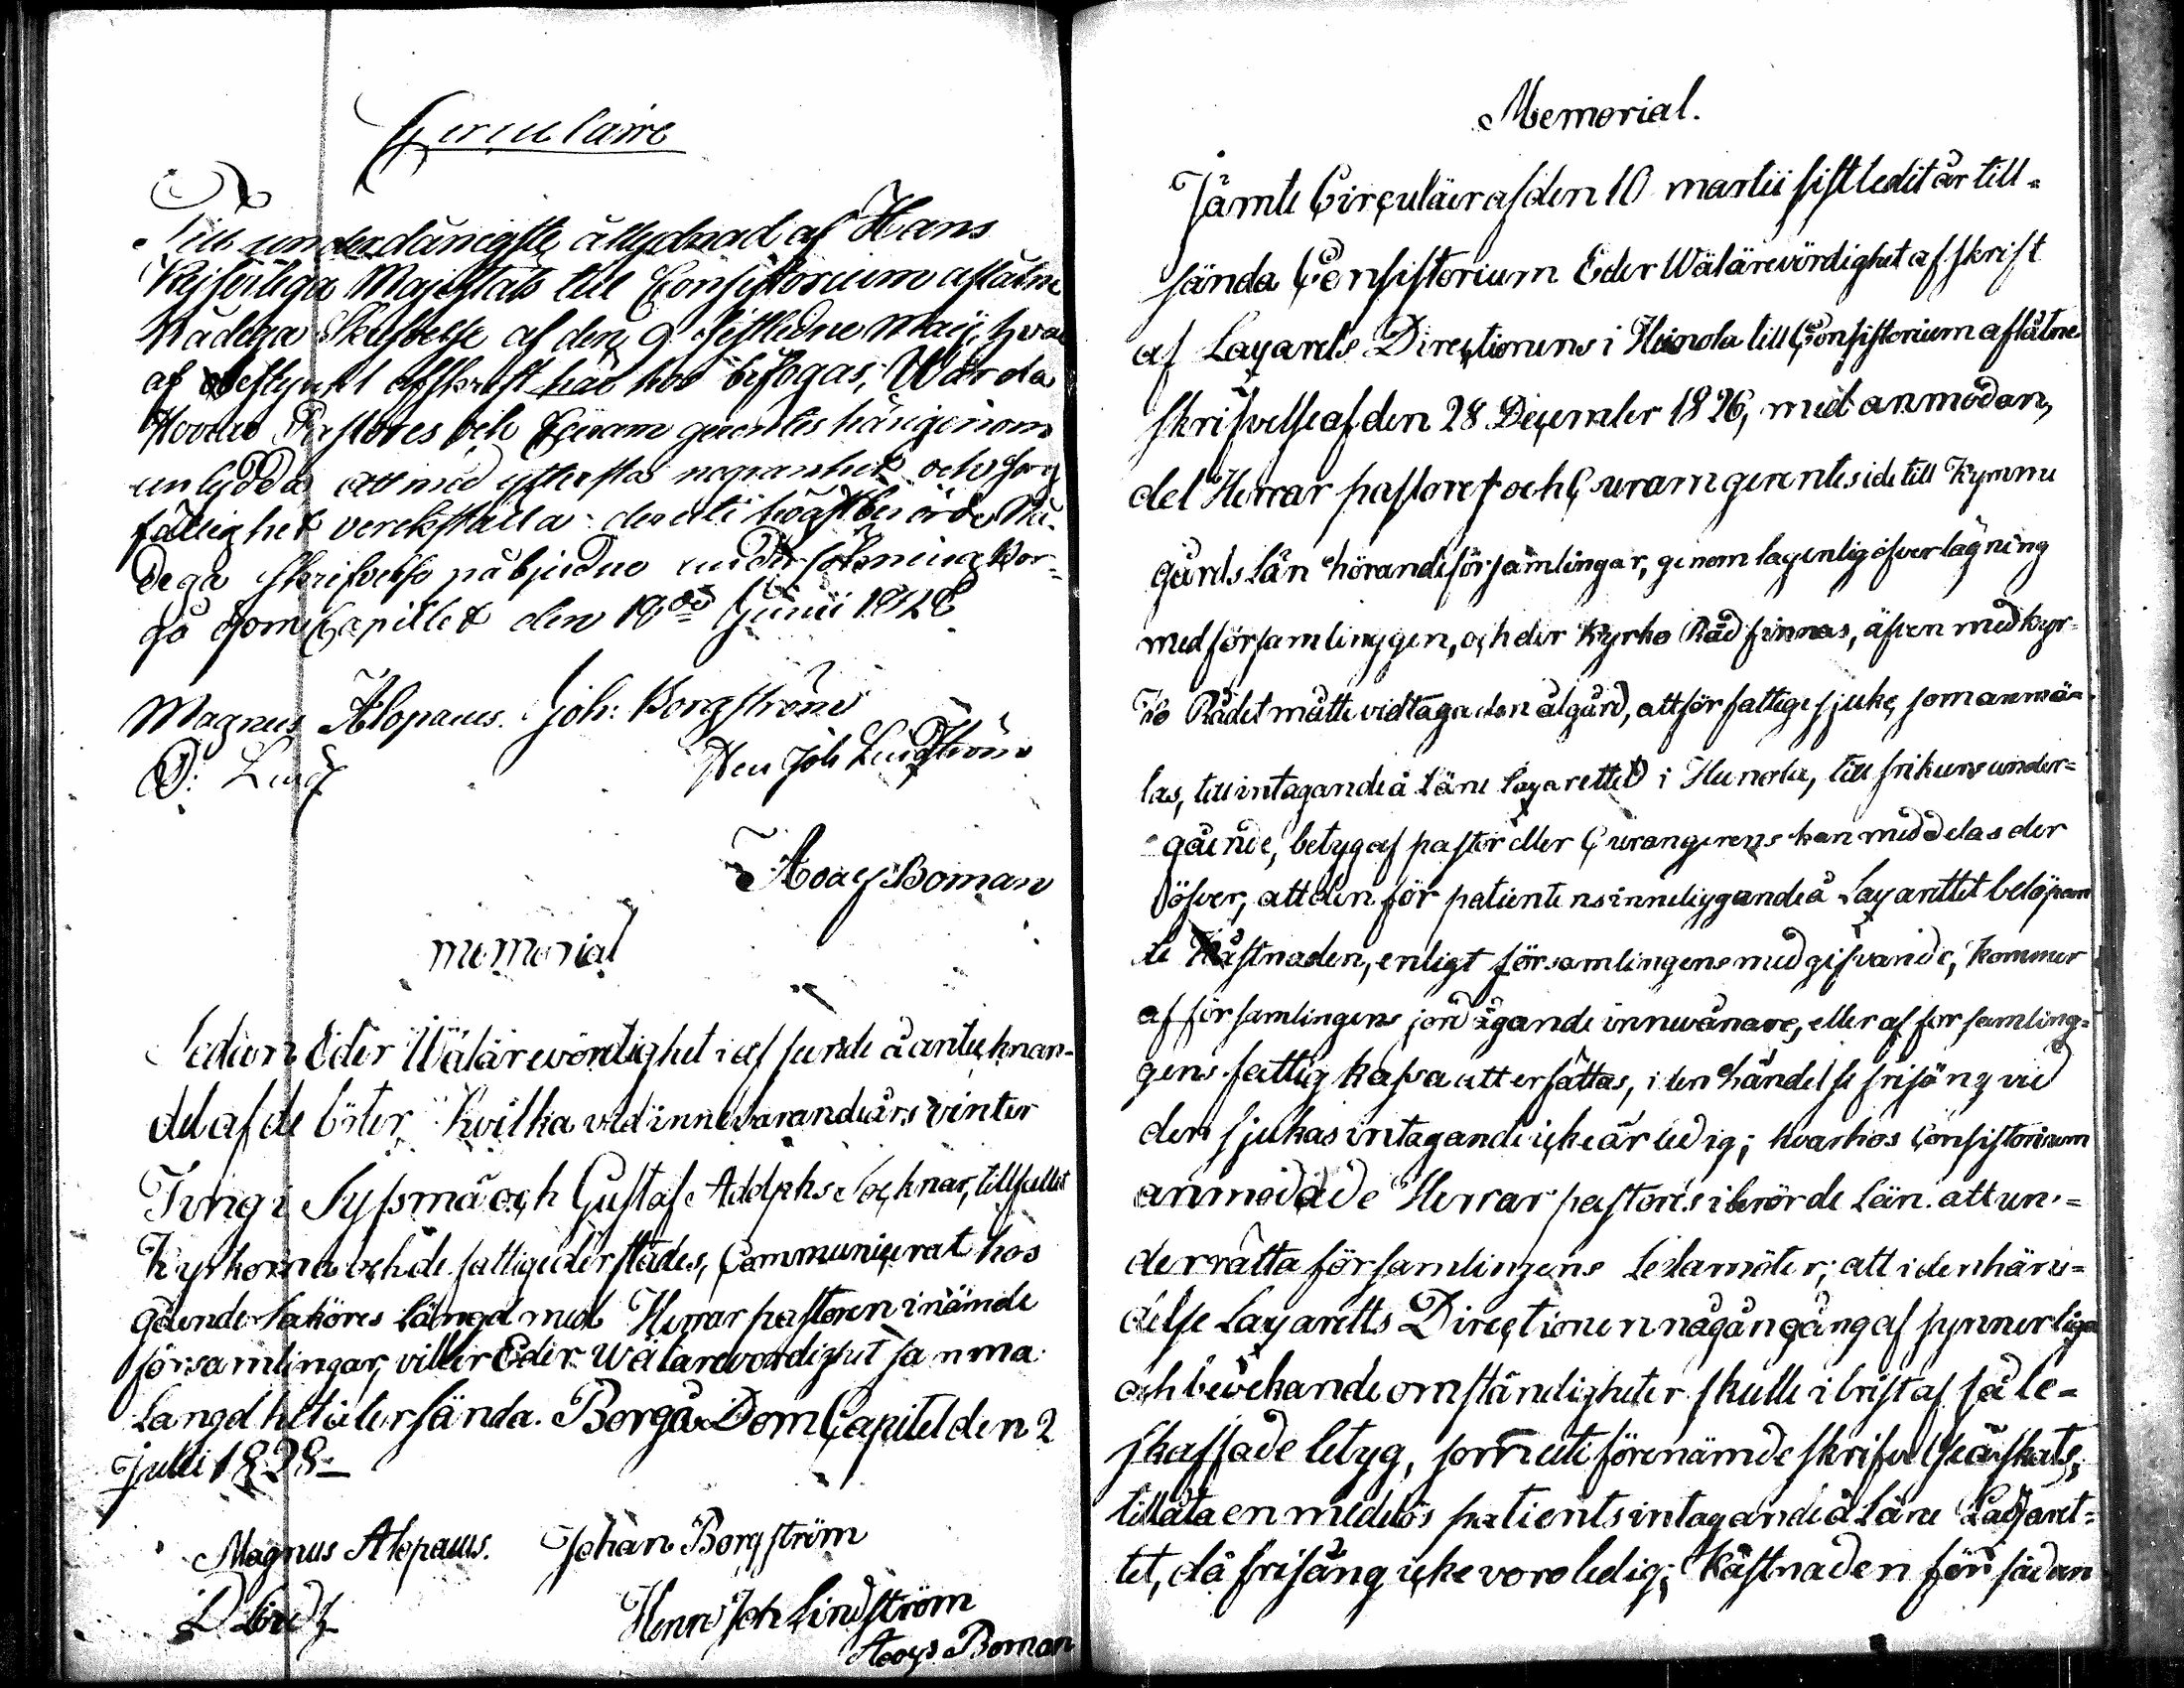 Circulaire
Till underdånigste åtlydnad af Hans
Kejserliga Majestäts till Consistorium aflåtne
Nådega Skrifvelse af den 9 sistledne Maij, hvar
af bestyrkt afskrift här hos bifogas; Warda
Herrar Pastores och Curam gerentes härigenom
anlydda att med ytterstas nogranhet och sorg
fällighet verckställa deruti höastberörde Nå-
dega skrifvelse påbjudne undersökning Bor-
gå Dom Capitlet den 18 de Junii 1828
Magnus Alopaeus. Joh: Borgström
D: Lindh
Hen Joh Lindström
Boman
memorial
Sedan Eder Wälärevördighet i afseende å anteknan-
del af de böter hvilka vid innevarande års vinter
Ting i Syssmä och Gustaf Adolphs Soçknar, tillfallit
Kyrkorna och de fattige derstädes, Communiçerat hos
gående saköres längd med Herrar pastoren i nämde
församlingar, viller Eder Wälarevordighet samma
Langd hit återsända. Borgå Dom Çapitel den 2
julli 1828
Magnus Alopaeus. Johan Borgström
D Lindh
Henr Joh Lindström
Boman
Memorial.
Jämte Çirçuläer af den 10 martii sistledit år till-
sända Çonsistorium Eder Wälärevördighet afskrift
af Lazarets Direçtionens i Heinola till Çonsistorium aflåtne
skrifvelse af den 28 Deçember 1826, med anmodan,
del Herrar pastores och Çuram gerentes i de till Kymme
gårds Län hörande församlingar, genom lagenlig öfverlägning
med församlingen, och der Kyrko Råd finnas, äfven med kyr-
ko Rådet måtte vidtaga den åtgärd, att för fattige sjuke, som anmä-
las, till intagande å Läne Lazarettet i Heinola, till frikurs under-
gående, betyg af pastor eller Çurangerens kan meddelas der
öfver, att den för patientens inneliggande å Lazarettet belöpan
de Kåstnaden, enligt församlingens medgifvande, kommer
af församlingens jord ägande innevånare, eller af församling-
gens fattig kassa att ersättas, i den händelse frisäng vid
den sjukas intagande içke är ledig; hvarhos Çonsistorium
anmodade Herrar pastores i berörde Län. att un-
derrätta församlingens Ledamöter; att i den hän-
delse Lazaretts Direçtionen någån gång af synnerliga
och bevekande omständigheter skulle i brist af såle-
skaffade betyg, som uti förenämde skrifvelse äskats,
tillåta en medelös patients intagande å Läne Lazaret-
tet, då frisäng içke vore ledig; Kåstnaden för sådan